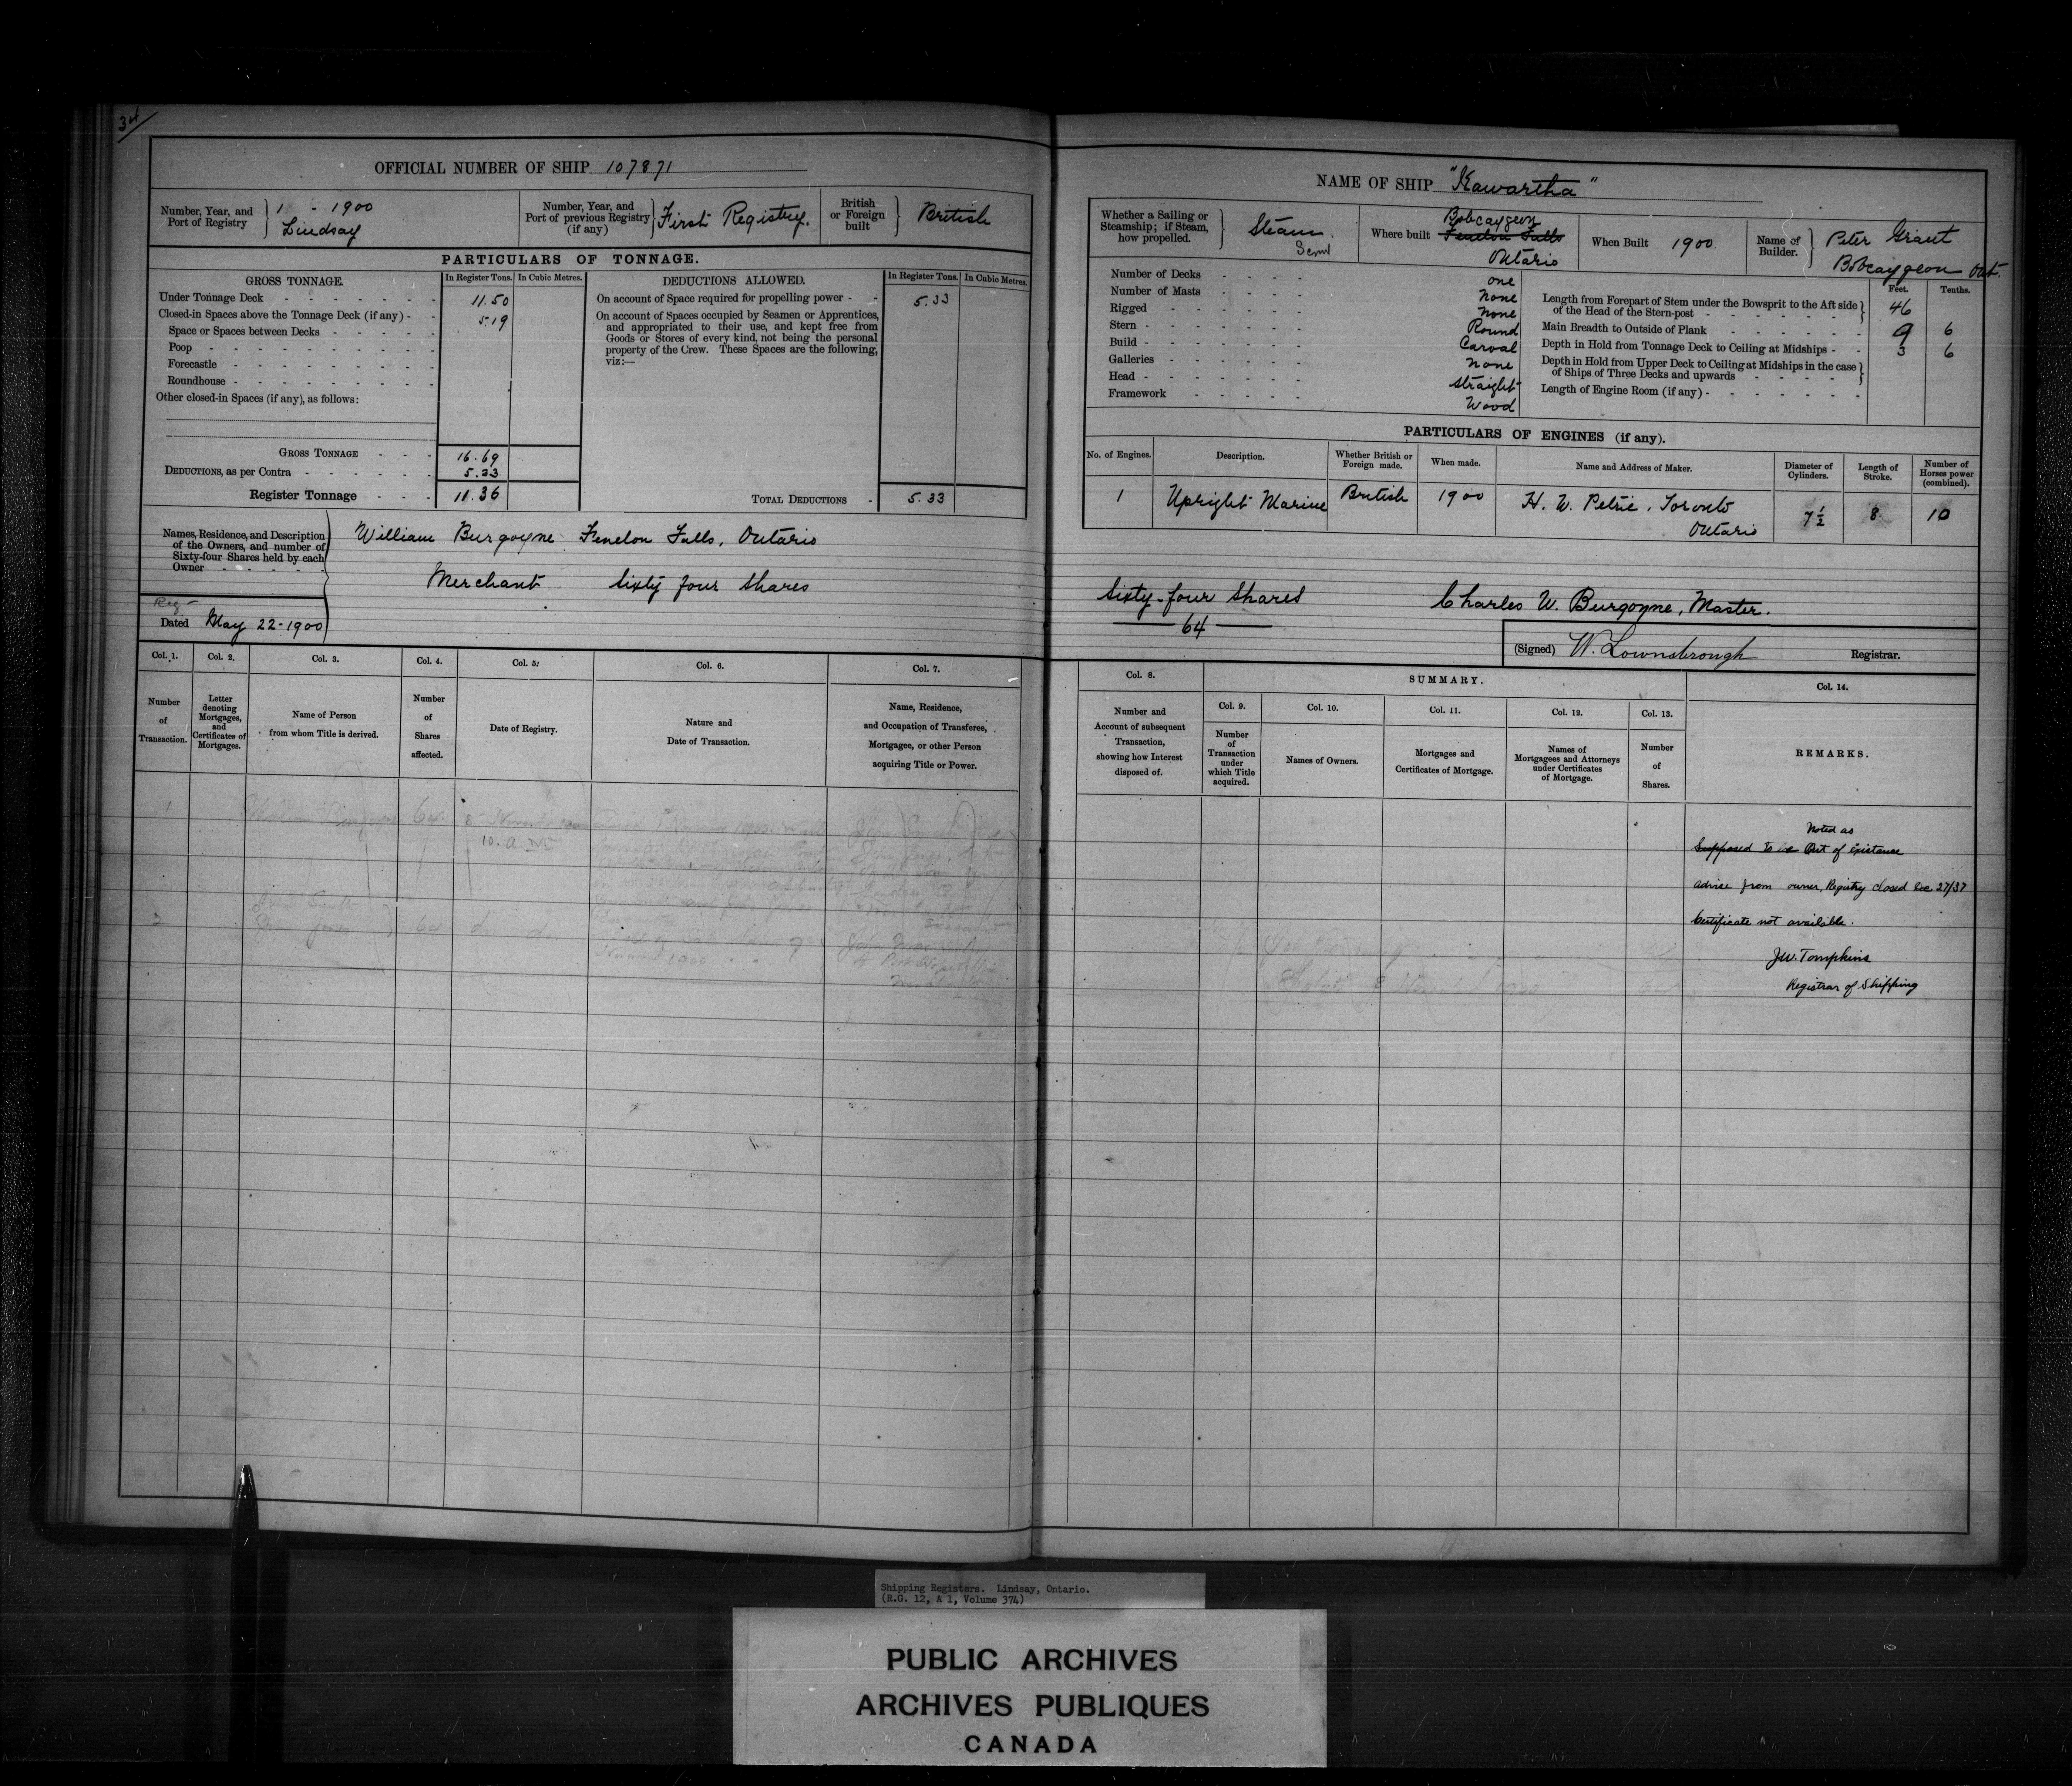 34
OFFICIAL NUMBER OF SHIP 107871
Number, Year, and Port of Registry } 1 - 1900 Lindsay
Number, Year, and Port of previous Registry (if any) } First Registry.
British or Foreign built } British
PARTICULARS OF TONNAGE.
GROSS TONNAGE. In Register Tons. In Cubic Metres.
Under Tonnage Deck 11.50
Closed-in Spaces above the Tonnage Deck (if any) 5.19
Space or Spaces between Decks
Poop
Forecastle
Roundhouse
Other closed-in Spaces (if any), as follows:
GROSS TONNAGE 16.69
DEDUCTIONS, as per Contra 5.33
Register Tonnage 11.36
DEDUCTIONS ALLOWED. In Register Tons. In Cubic Metres.
On account of Space required for propelling power 5.33
On account of Spaces occupied by Seamen or Apprentices,
and appropriated to their use, and kept free from
Goods or Stores of every kind, not being the personal
property of the Crew. These Spaces are the following,
viz:—
TOTAL DEDUCTIONS 5.33
Names, Residence, and Description
of the Owners, and number of
Sixty-four Shares held by each
Owner
William Burgoyne Fenelon Falls, Ontario
Merchant Sixty four Shares
Reg
Dated May 22-1900
Col. 1. Number of Transaction.
Col. 2. Letter denoting Mortgages, and Certificates of Mortgages.
Col. 3. Name of Person from whom Title is derived.
Col. 4. Number of Shares affected.
Col. 5. Date of Registry.
Col. 6. Nature and Date of Transaction.
Col. 7. Name, Residence, and Occupation of Transferee, Mortgagee, or other Person acquiring Title or Power.
1 William Burgoyne 64
10. A M
2
64
NAME OF SHIP "Kawartha"
Whether a Sailing or Steamship; if Steam, how propelled. } Steam. Screw
Where built Bobcaygeon Fenelon Falls Ontario
When Built 1900
Name of Builder. } Peter Grant Bobcaygeon Ont.
Number of Decks one
Number of Masts none
Rigged none
Stern Round
Build Carval
Galleries none
Head straight
Framework Wood
Feet. Tenths.
Length from Forepart of Stem under the Bowsprit to the Aft side of the Head of the Stern-post 46
Main Breadth to Outside of Plank 9 6
Depth in Hold from Tonnage Deck to Ceiling at Midships 3 6
Depth in Hold from Upper Deck to Ceiling at Midships in the case of Ships of Three Decks and upwards
Length of Engine Room (if any)
PARTICULARS OF ENGINES (if any).
No. of Engines. Description. Whether British or Foreign made. When made. Name and Address of Maker. Diameter of Cylinders. Length of Stroke. Number of Horses power (combined).
1 Upright Marine British 1900 H. W. Petrie, Toronto Ontario 7½ 8 10
Sixty-four Shares
64
Charles W. Burgoyne, Master.
(Signed) W. Lownsbrough Registrar.
Col. 8. Number and Account of subsequent Transaction, showing how Interest disposed of.
SUMMARY.
Col. 9. Number of Transaction under which Title acquired.
Col. 10. Names of Owners.
Col. 11. Mortgages and Certificates of Mortgage.
Col. 12. Names of Mortgagees and Attorneys under Certificates of Mortgage.
Col. 13. Number of Shares.
Col. 14. REMARKS.
Noted as
Supposed to be Out of Existance
advice from owner, Registry closed Dec 27/37
Certificate not available.
J.W. Tompkins
Registrar of Shipping
Shipping Registers. Lindsay, Ontario.
(R.G. 12, A 1, Volume 374)
PUBLIC ARCHIVES
ARCHIVES PUBLIQUES
CANADA